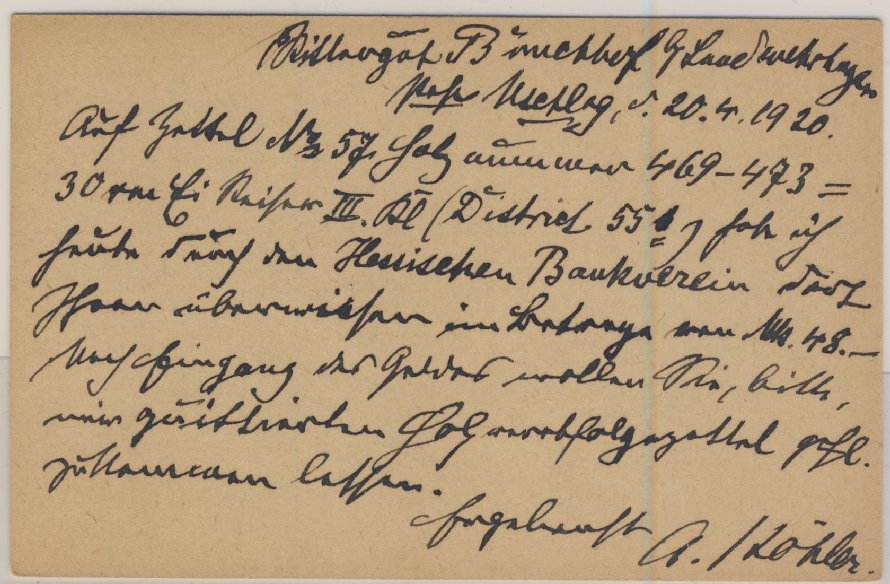 Rittergut Bünchhof b/ Landwehrhagen
Post Uschlag, d. 20.4.1920.
Auf Zettel No 57, Holznummer 469–473 =
30 rm Ei Reiser III. Kl (District 55) habe ich
heute durch den Hessischen Bankverein dort
Ihnen überwiesen im Betrage von Mk. 48.–
Nach Eingang des Geldes wollen Sie, bitte,
mir quittierten Holzverabfolgezettel gefl.
zukommen lassen.
Ergebenst
A. Köhler.